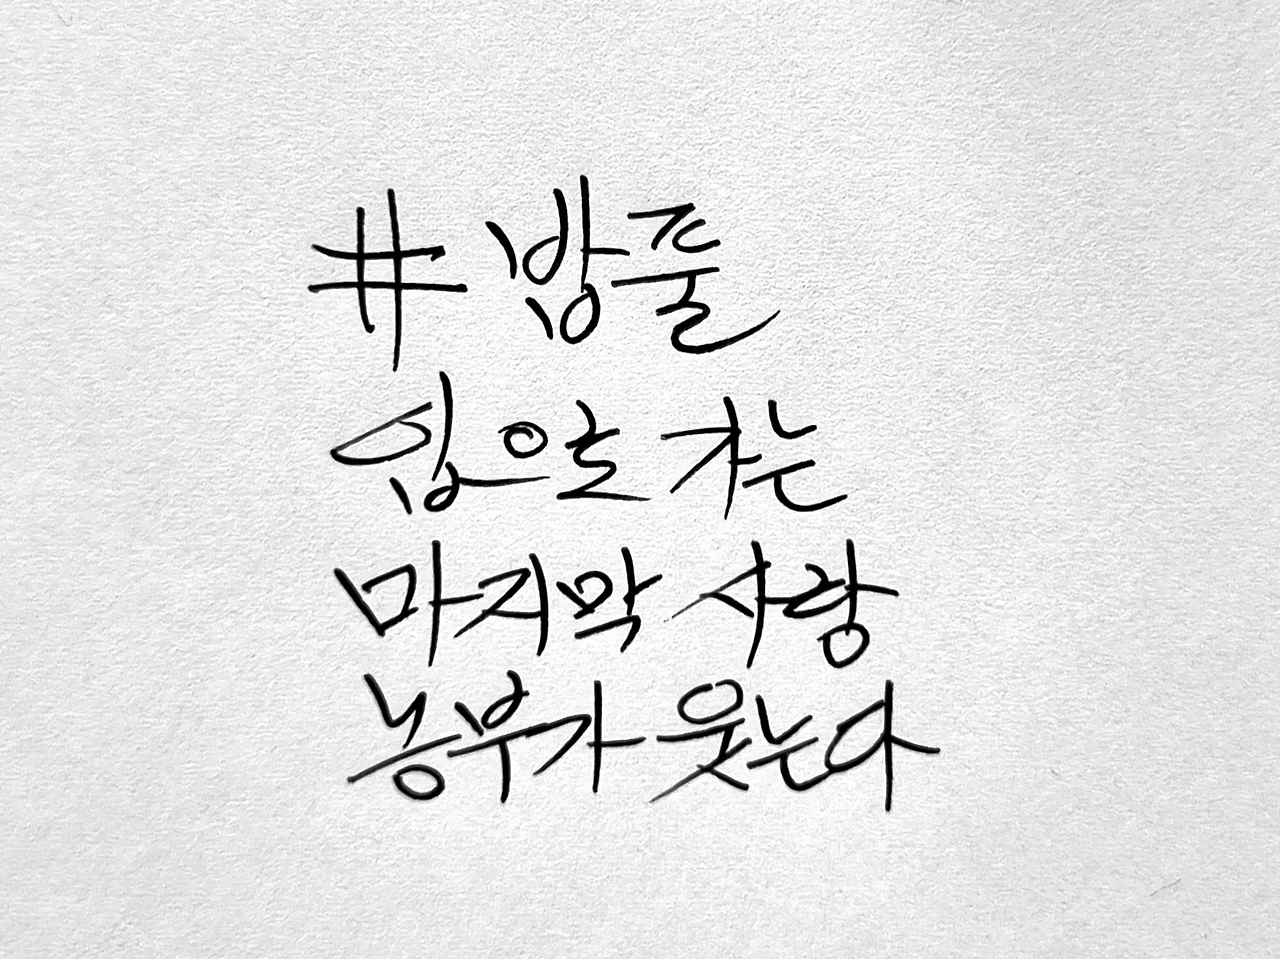 # 밥줄
입으로 가는
마지막 사랑
농부가 웃는다